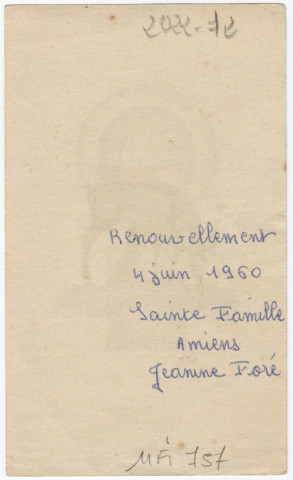 2022-72
Renouvellement
4 juin 1960
Sainte Famille
Amiens
Jeanine Foré
11Fi 757